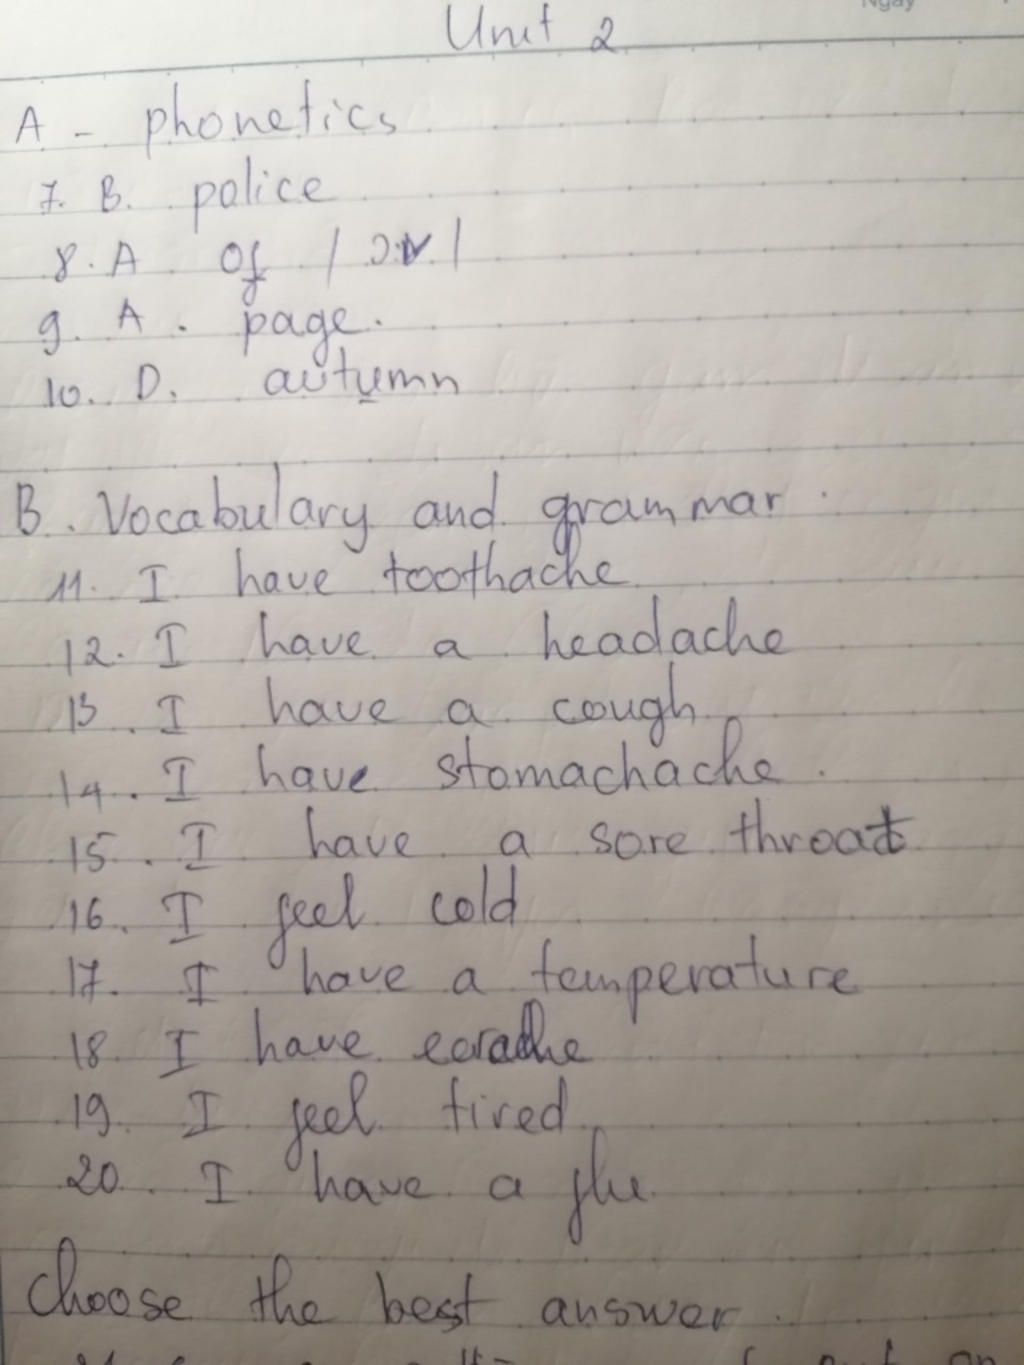 Ngày
Unit 2
A - phonetics
7. B. police
8. A of /ɔv/
9. A. page.
10. D. autumn
B. Vocabulary and grammar.
11. I have toothache
12. I have a headache
13. I have a cough
14. I have stomachache.
15. I have a sore throat
16. I feel cold
17. I have a temperature
18 I have earache
19. I feel tired
20. I have a flu.
Choose the best answer.